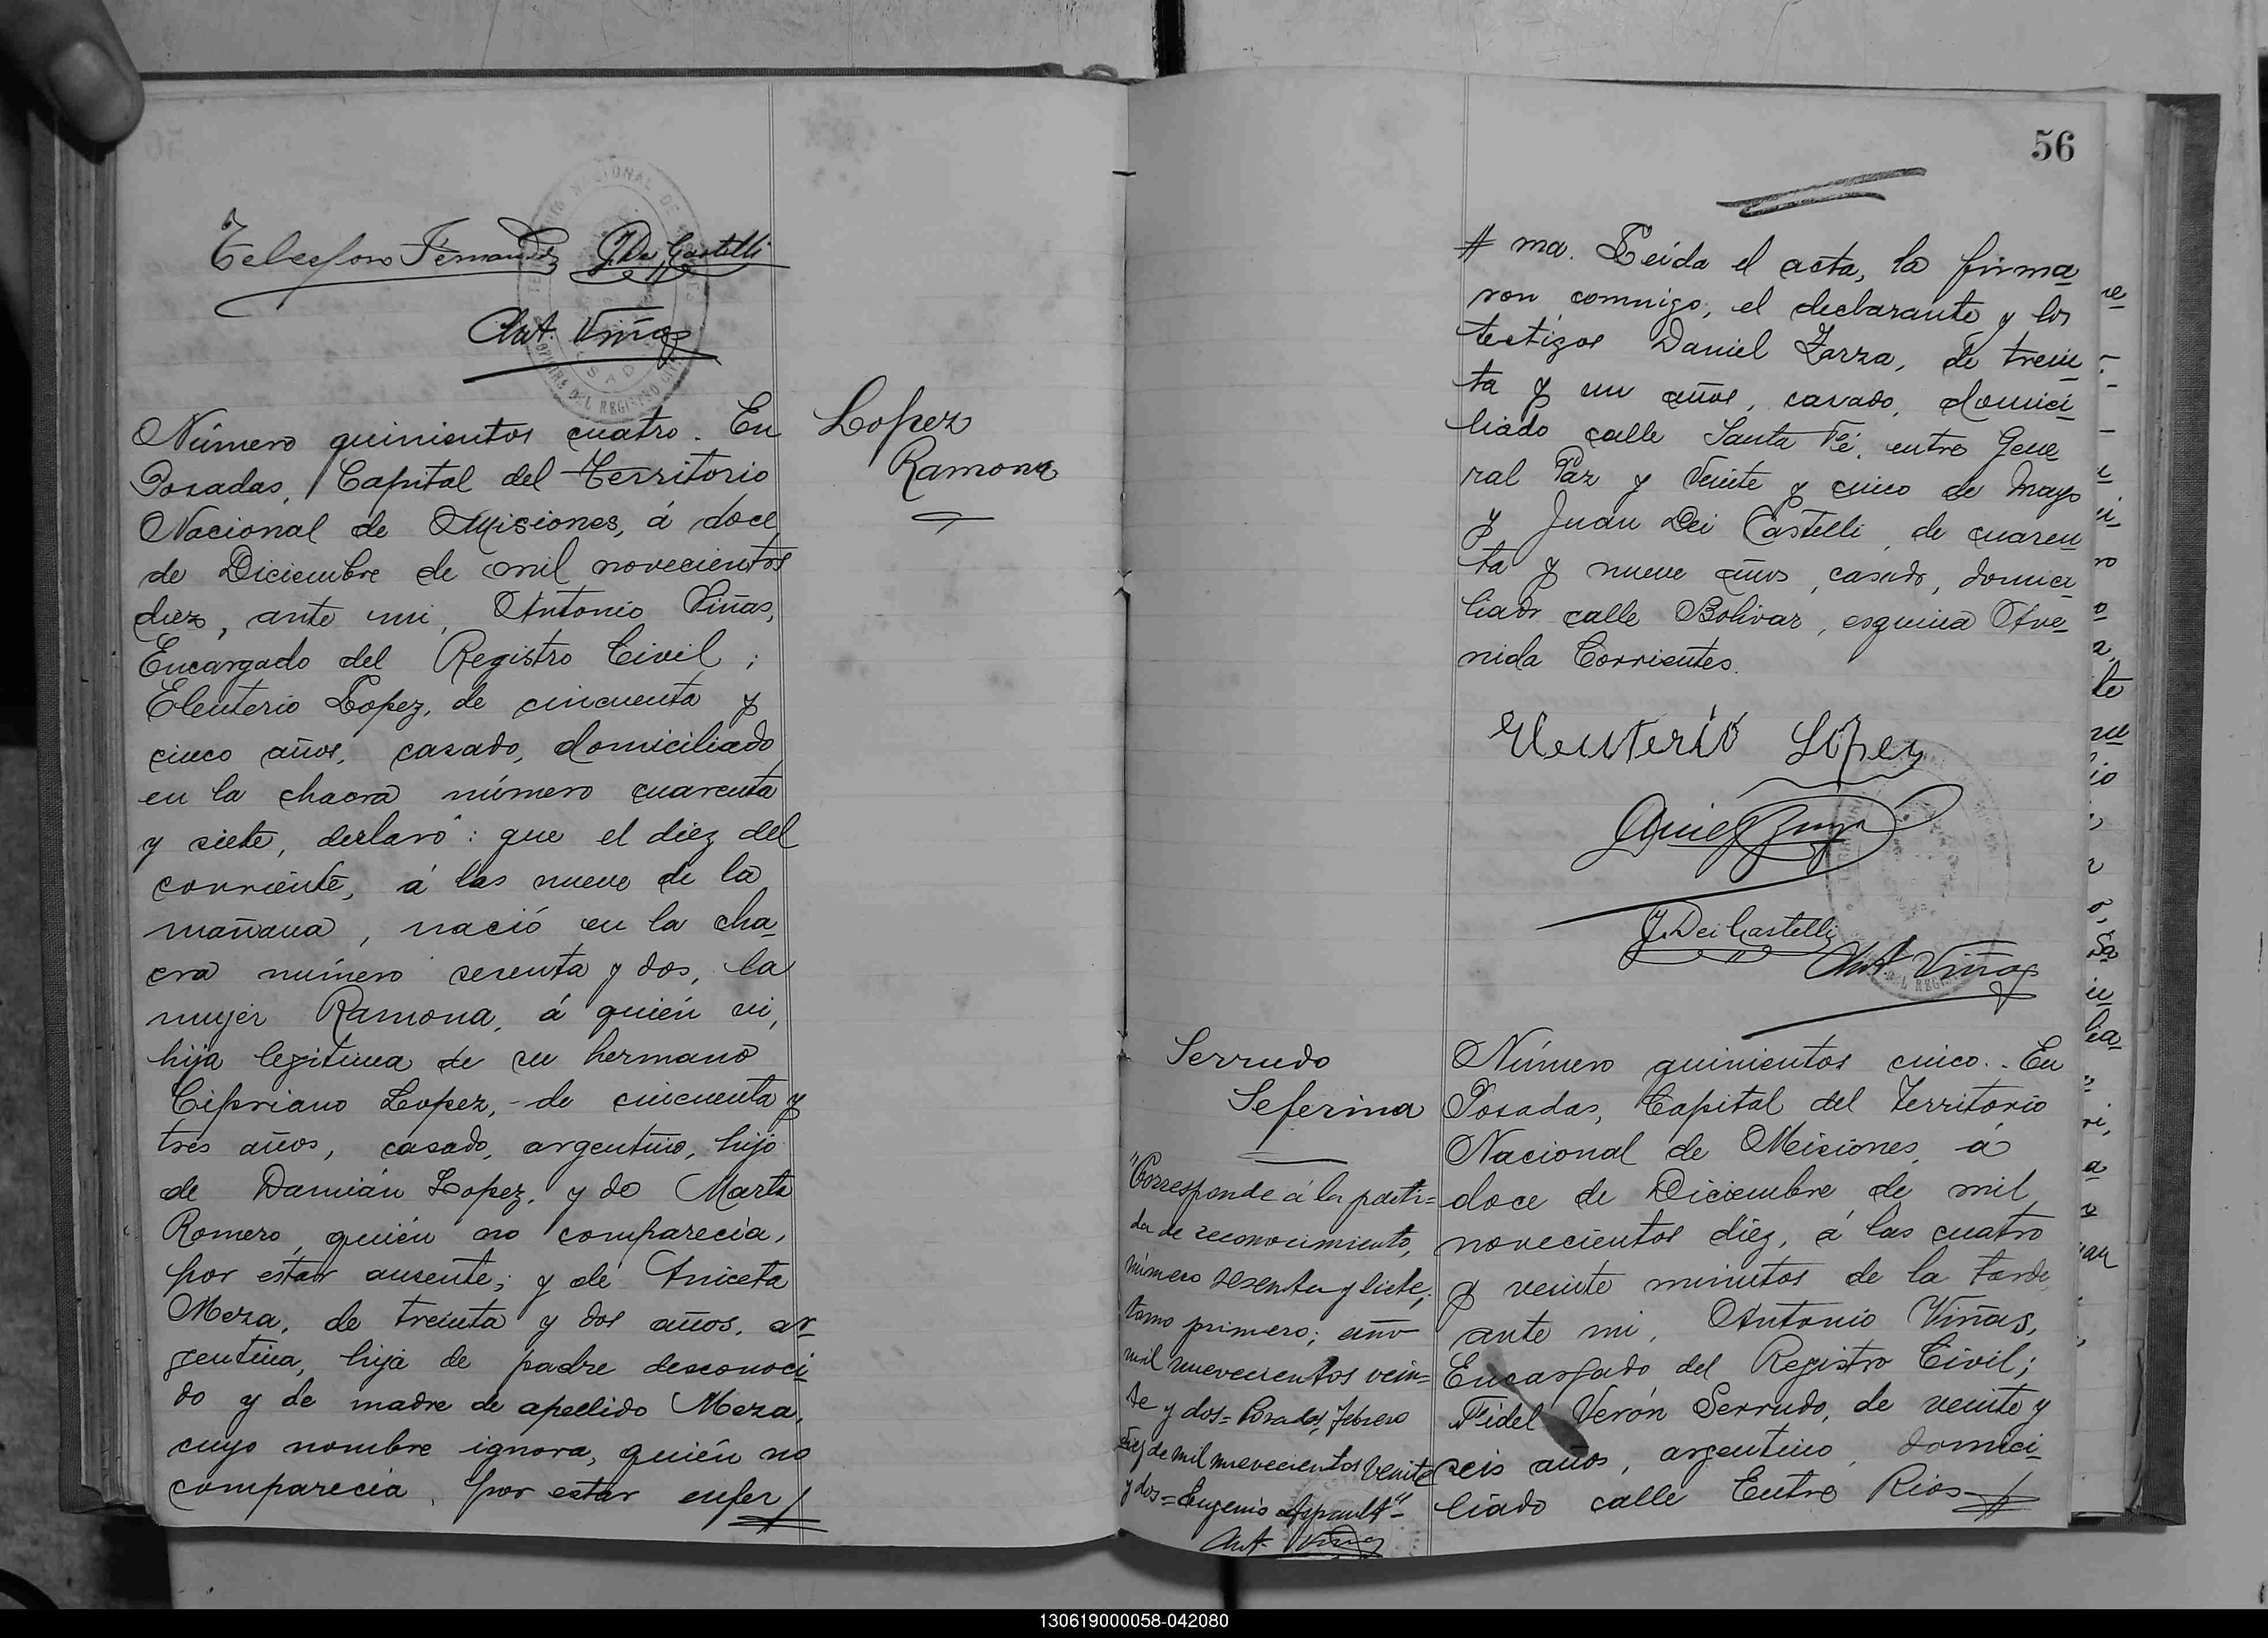 Telesforo Fernandez J. Dei Castelli
Ant. Viñas
Número quinientos cuatro. En
Posadas, Capital del Territorio
Nacional de Misiones, á doce
de Diciembre de mil novecientos
diez, ante mi, Antonio Viñas,
Encargado del Registro Civil;
Eleuterio Lopez, de cincuenta y
cinco años, casado, domiciliado
en la chacra número cuarenta
y siete, declaró: que el diez del
corriente, á las nueve de la
mañana, nació en la cha
cra número sesenta y dos, la
mujer Ramona, á quién vi,
hija legitima de su hermano
Cipriano Lopez, de cincuenta y
tres años, casado, argentino, hijo
de Damián Lopez, y de Marta
Romero, quién no comparecia,
por estar ausente; y de Aniceta
Meza, de treinta y dos años, ar
gentina, hija de padre desconoci
do y de madre de apellido Meza,
cuyo nombre ignora, quién no
comparecia, por estar enfer
Lopez
Ramona
56
ma. Leida el acta, la firma
ron conmigo, el declarante y los
testigos Daniel Zarza, de trein
ta y un años, casado, domici
liado calle Santa Fé, entre Gene
ral Paz y Veinte y cinco de Mayo
y Juan Dei Castelli, de cuaren
ta y nueve años, casado, domici
liado calle Bolivar, esquina Ave-
nida Corrientes.
Eleuterio Lopez
J. Dei Castelli
Ant. Viñas
Serrudo
Seferina
"Corresponde á la parti=
da de reconocimiento,
número sesenta y siete,
tomo primero; año
mil nuevecientos vein=
te y dos= Posadas, Febrero
diez de mil nuevecientos veinte
y dos= Eugenio
Ant. Viñas
Número quinientos cinco. En
Posadas, Capital del Territorio
Nacional de Misiones, á
doce de Diciembre de mil
novecientos diez, á las cuatro
y veinte minutos de la tarde
ante mi, Antonio Viñas,
Encargado del Registro Civil;
Fidel Verón Serrudo, de veinte y
seis años, argentino, domici
liado calle Entre Rios
130619000058-042080